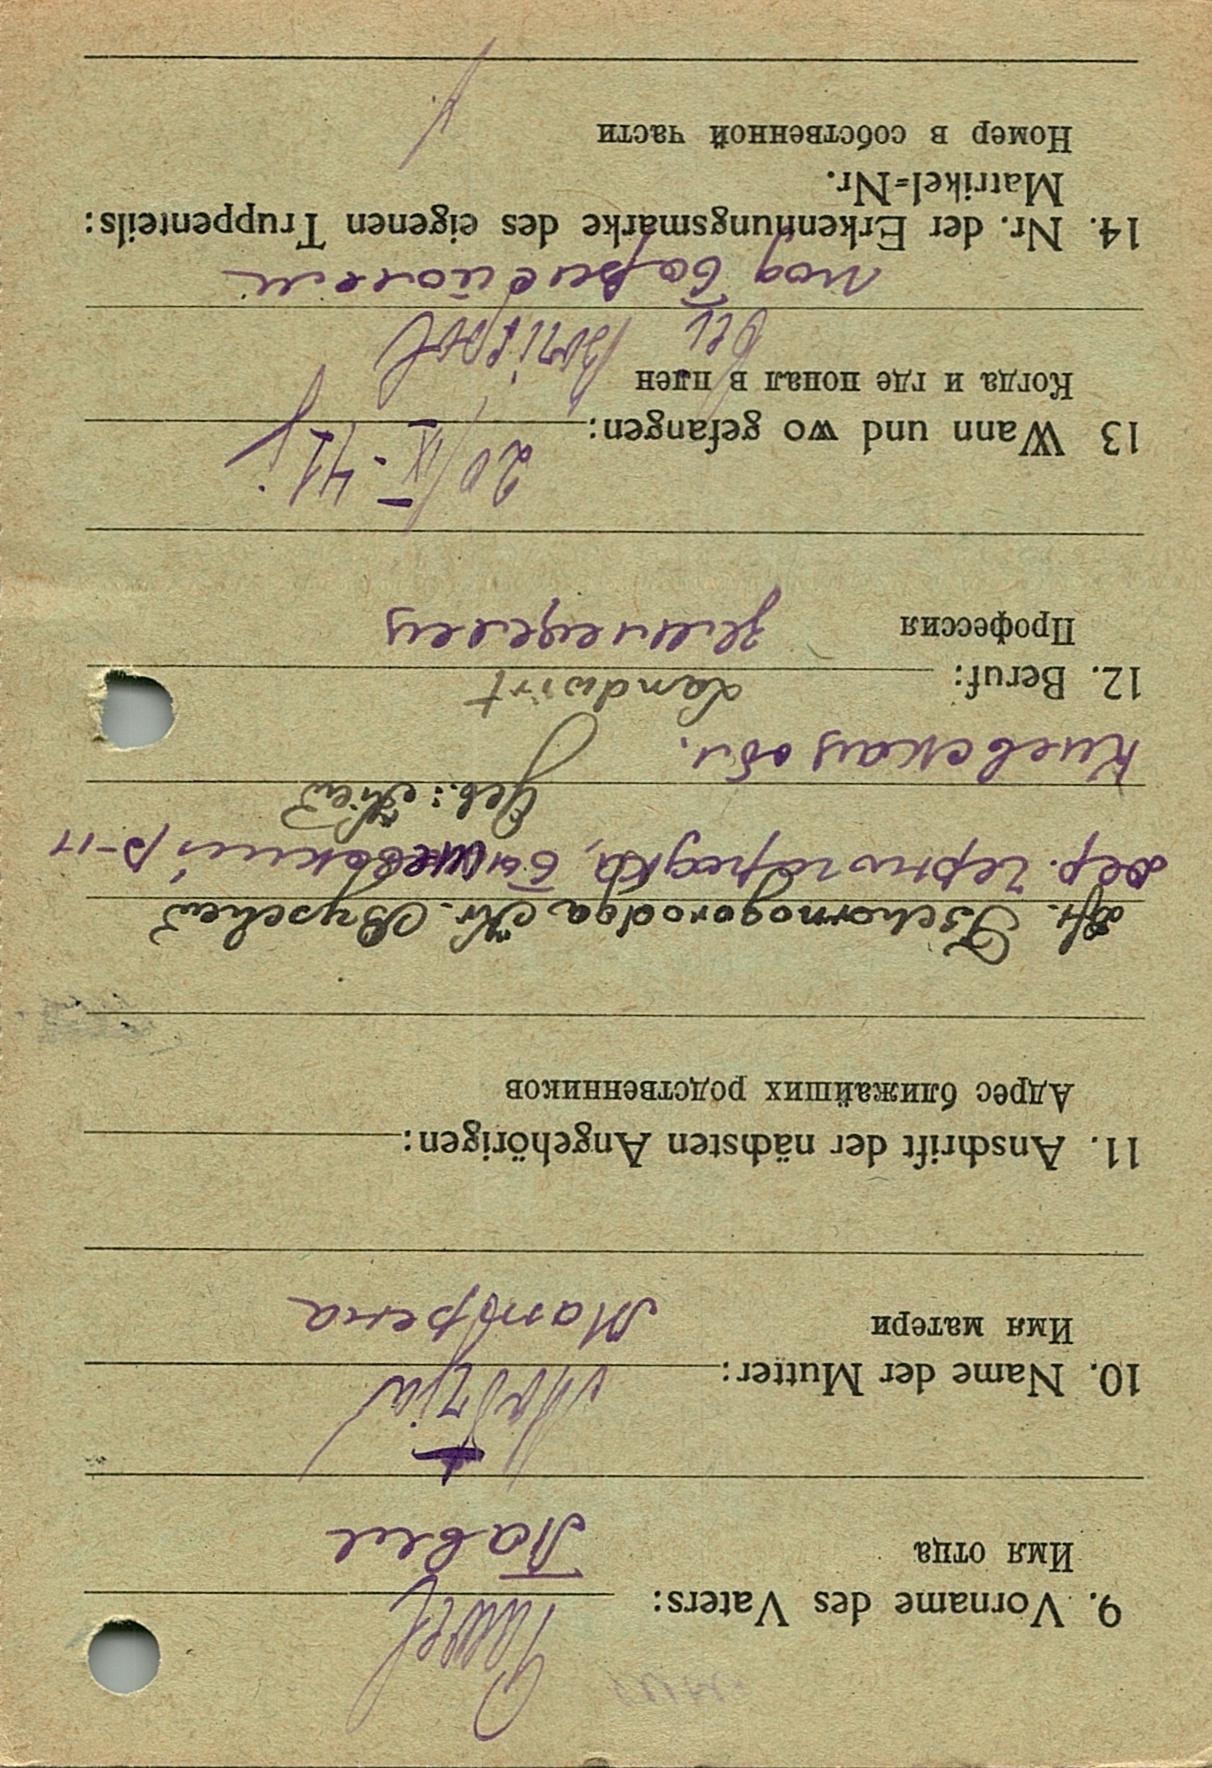 Pawel
9. Vorname des Vaters:
Имя отца
Павел
10. Name der Mutter:
Имя матери
Матрена
11. Anschrift der nächsten Angehörigen:
Адрес ближайших родственников
Df. Tschornogorodga Kr. Byschew
дер. Черногородка, Бышевский р-н
Geb.: Kiew
Киевская обл.
12. Beruf:
Landwirt
Профессия
13 Wann und wo gefangen:
20/IX-41
Когда и где попал в плен
bei Borispol
под Борисполем
14. Nr. der Erkennungsmarke des eigenen Truppenteils:
Matrikel-Nr.
Номер в собственной части